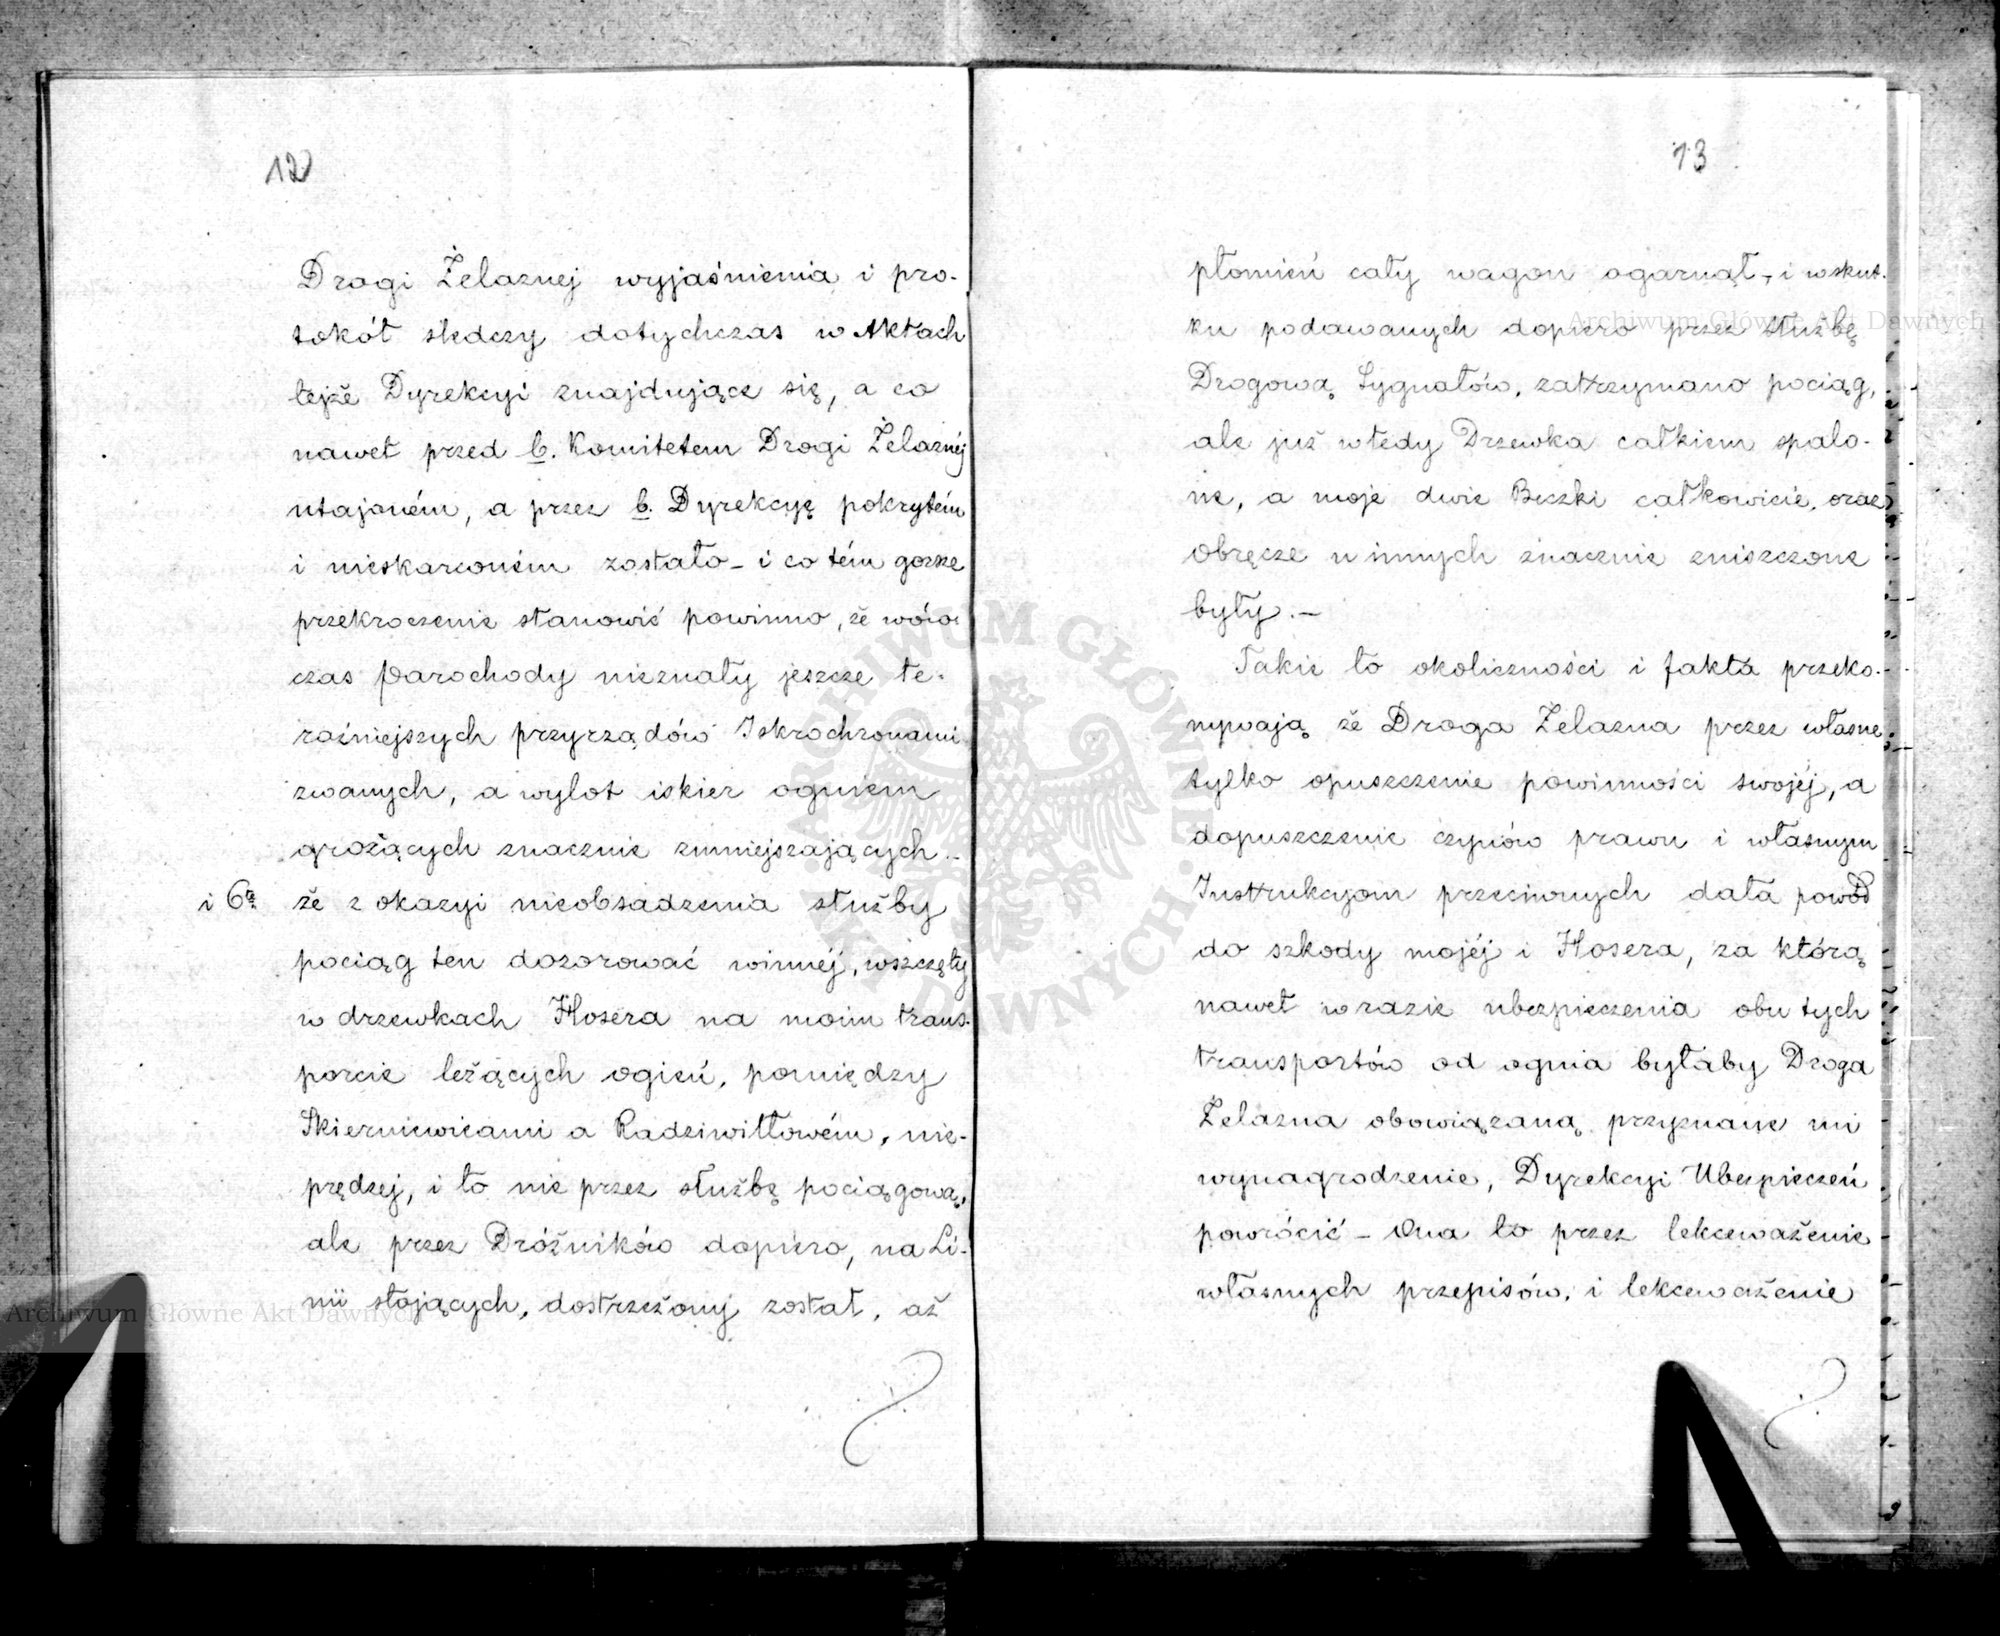 12
Drogi Żelaznej wyjaśnienia i pro-
tokół śledczy dotychczas w Aktach
tejże Dyrekcyi znajdujące się, a co
nawet przed b. Komitetem Drogi Żelaznéj
utajoném, a przez b. Dyrekcyę pokrytém
i nieskarconém zostało – i co tém gorsze
przekroczenie stanowić powinno, że wów-
czas Parochody nieznały jeszcze te-
raźniejszych przyrządów Iskrochronami
zwanych, a wylot iskier ogniem
grożących znacznie zmniejszających –
i 6te że z okazyi nieobsadzenia służby
pociąg ten dozorować winnéj, wszczęty
w drzewkach Hosera na moim trans-
porcie leżących ogień, pomiędzy
Skierniewicami a Radziwiłłowém, nie-
prędzej, i to nie przez służbę pociągową,
ale przez Dróżników dopiero, na Li-
nii stojących, dostrzeżony został, aż
13
płomień cały wagon ogarnął, i wskut-
ku podawanych dopiero przez służbę
Drogową Sygnałów, zatrzymano pociąg,
ale już wtedy Drzewka całkiem spalo-
ne, a moje dwie Beczki całkowicie, oraz
Obręcze u innych znacznie zniszczone
były. –
Takie to okoliczności i fakta przeko-
nywają że Droga Żelazna przez własne
tylko opuszczenie powinności swojéj, a
dopuszczenie czynów prawu i własnym
Instrukcyom przeciwnych dała powód
do szkody mojéj i Hosera, za którą
nawet w razie ubezpieczenia obu tych
transportów od ognia byłaby Droga
Żelazna obowiązaną przyznane mi
wynagrodzenie, Dyrekcyi Ubezpieczeń
powrócić – Ona to przez lekceważenie
własnych przepisów, i lekceważenie
Archiwum Główne Akt Dawnych
Archiwum Główne Akt Dawnych
ARCHIWUM GŁÓWNE AKT DAWNYCH